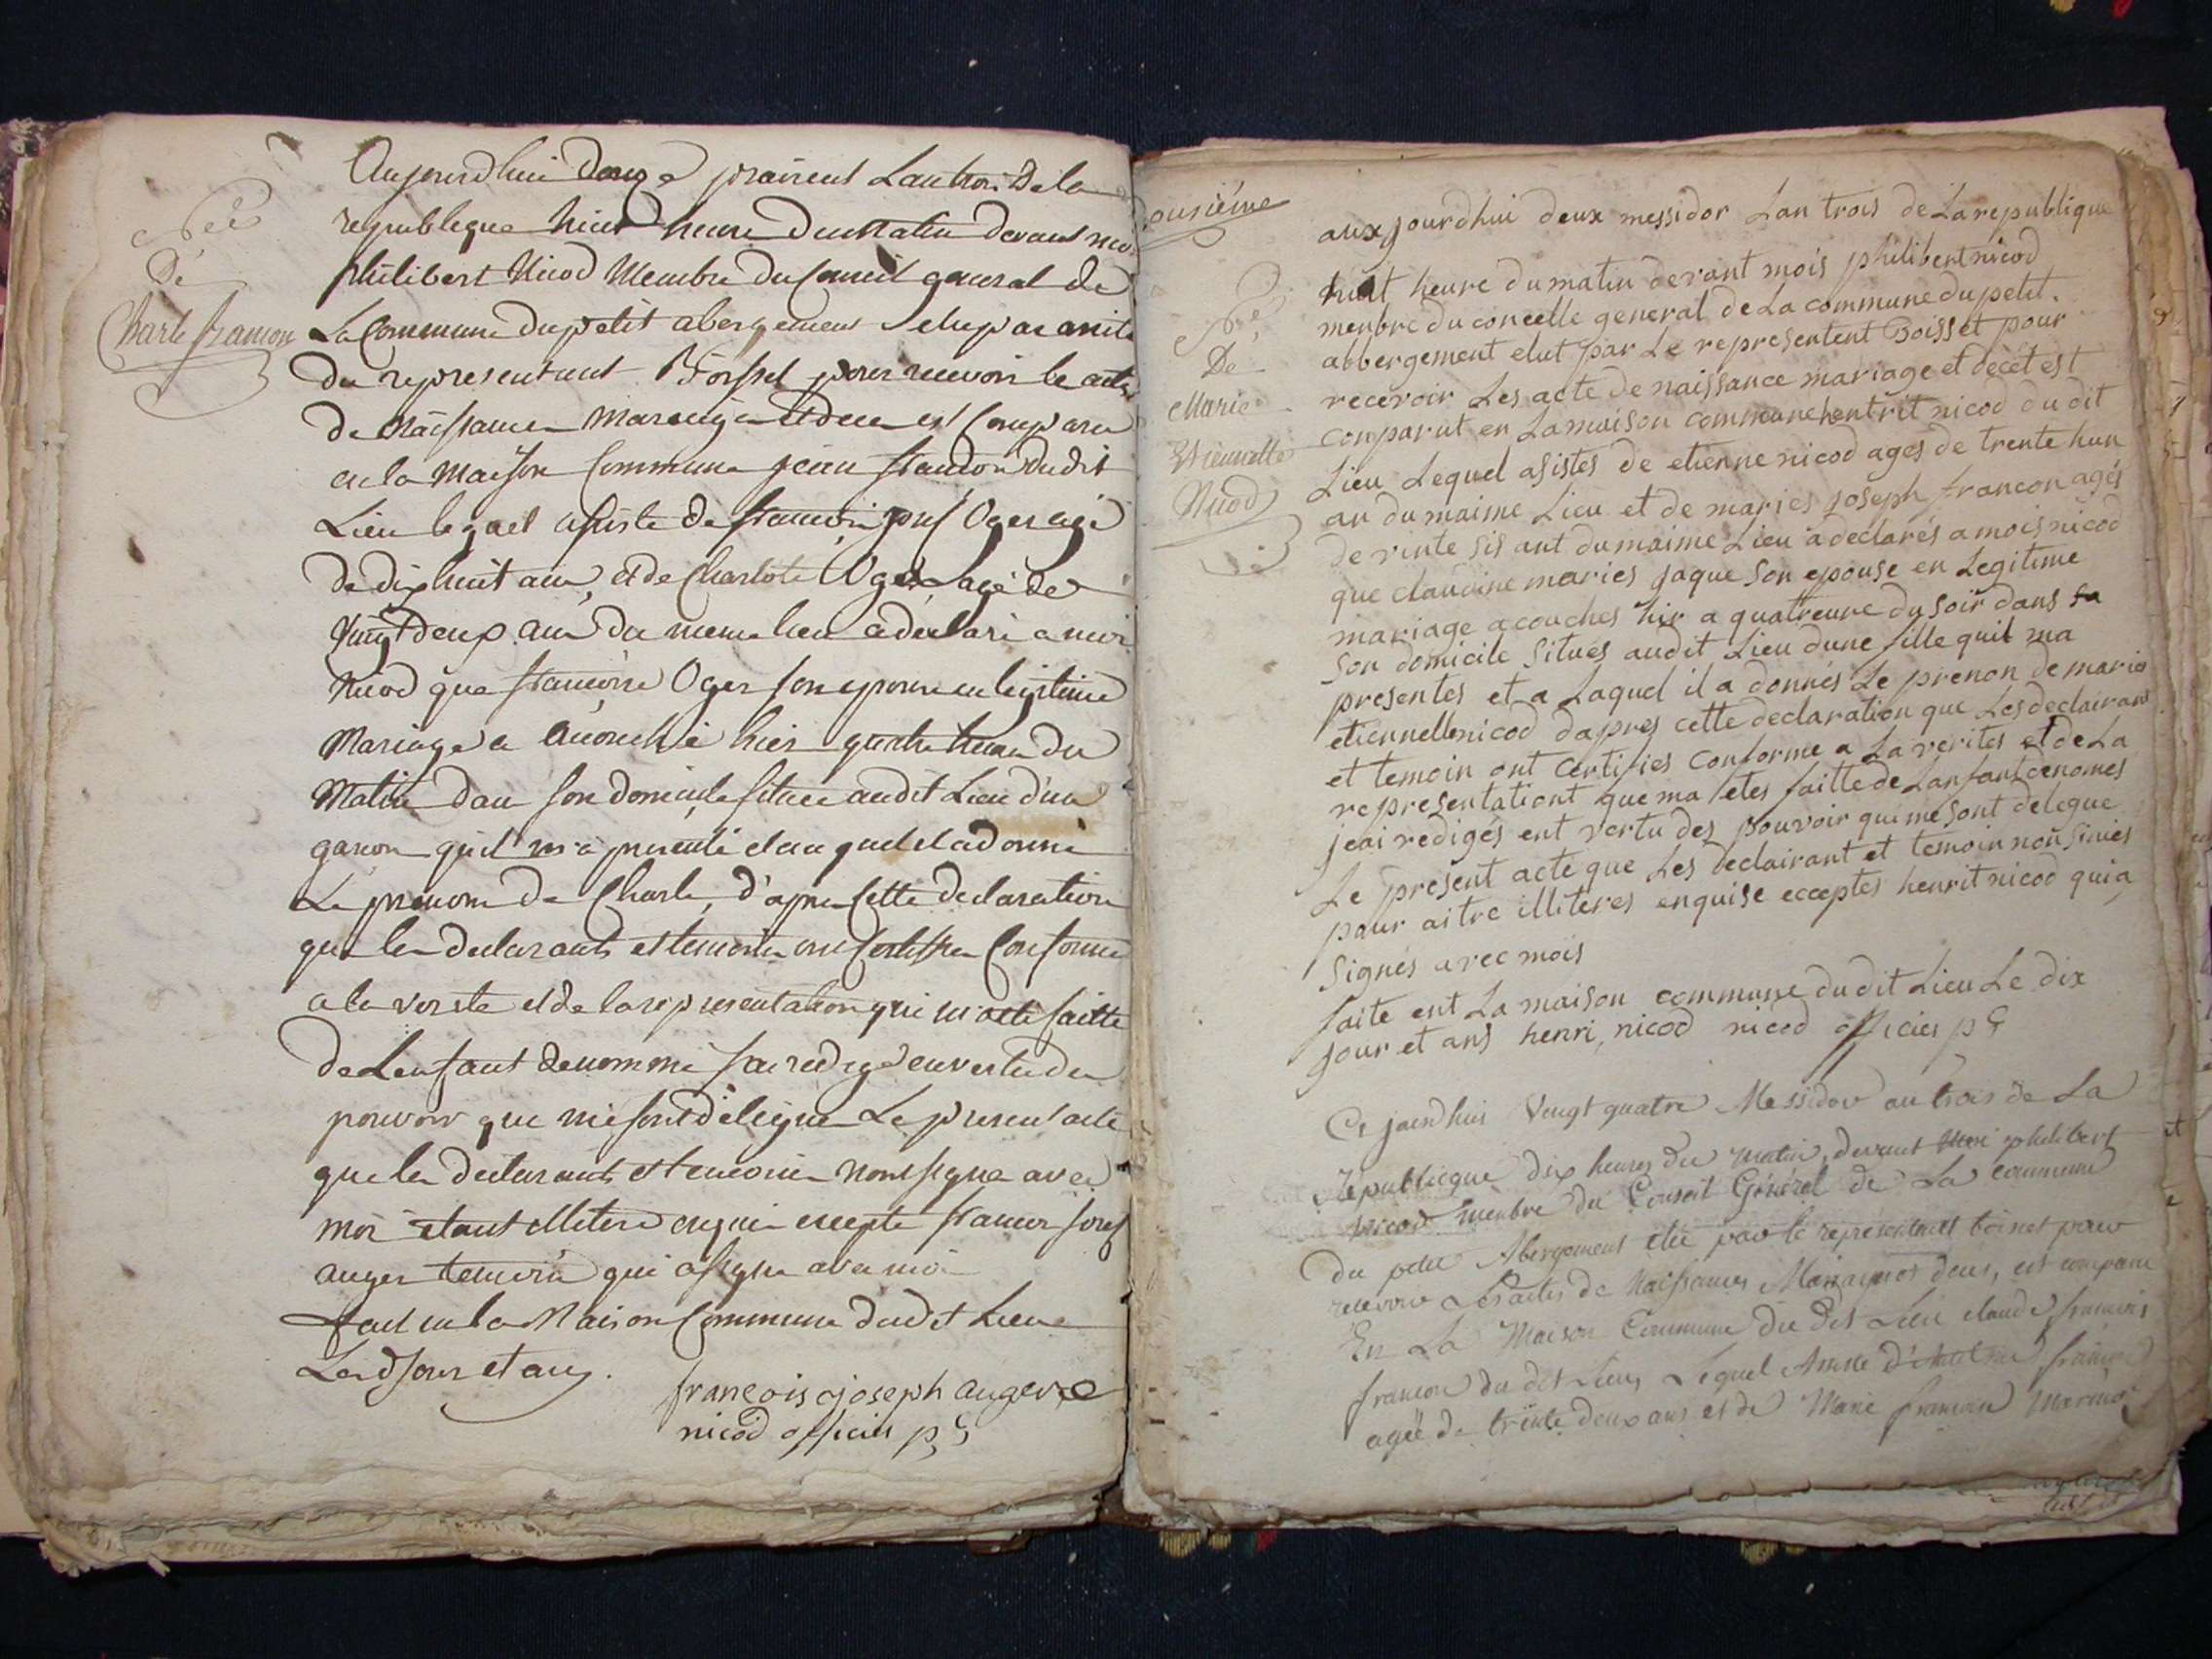 Née
De
Charle francon
Aujourdhui douze prairial Lan trois de la
republique huit heure du Matin devant moi
philibert Nicod Membre du Conseil general de
La Commune du petit abergement
du representant Boisset pour recevoir le acte
de Naissance Mariage et dece est Comparu
en la Maison Commune jean francon dudit
Lieu lequel assiste de francoi josef Oger agé
de dix huit ans, et de Charlote Oger agé de
Vingt deux ans du meme lieu a déclaré a moi
Nicod que francoise Oger son epouse en legitime
Mariage a acouché hier quatre heure du
Matin dan son domicile situee audit Lieu d'un
garcon quil m'a presenté et au quel il a donné
Le prenom de Charle, d'apres Cette declaration
que les declarants et temoin ont Certifier Conforme
a la verite et de la representation qui m'a eté faitte
de Lenfant denommé jai redigé en vertu du
pouvoir que me sont délégué Le present acte
que les declarants et temoin nont signe avec
moi etant illitere enquis excepté francoi josef
auger temoin qui a signe avec moi
fait en la Maison Commune dudit Lieu
Led jour et an.
francois joseph auger
nicod officier p c
onsiéme
Née
De
Marie
Etiennette
Nicod
aux jourdhui deux messidor Lan trois de La republique
huit heure du matin devant mois philibert nicod
menbre du concelle general de La commune du petit
abbergement elut par Le representent Boisset pour
recevoir Les acte de naissance mariage et décét est
conparut en La maison commune hentrit nicod du dit
Lieu Lequel asistes de etienne nicod ages de trente hun
an du maime Lieu et de maries joseph francon agés
de vinte sis ant du maime Lieu a declarés a mois nicod
que claudine maries jaque son epouse en Legitime
mariage acouches hir a quatreure du soir dans sa
son domicile situés audit Lieu dune fille quil ma
presentes et a Laquel il a donnés Le prenon de marie
etiennette nicod dapres cette declaration que Les declairans
et temoin ont certifies conforme a La verites et de La
representationt que ma etes faitte de Lanfant denomes
jeai redigés ent vertu des pouvoir qui me sont delegue
Le present acte que Les declairant et temoin non sinies
pour aitre illiteres enquise ecceptes henrit nicod qui a
signés avec mois
faite ent La maison commune du dit Lieu Le dix
jour et ans henri nicod nicod officier p c
Ce jourdhui Vengt quatre Messidor an trois de La
Republicque dix heures du matin, devant Moi philibert
Nicod menbre du Conseil Général de La commune
du petit Abergement élu par le representant boisset pour
recevoir Les actes de Naissances Mariages et deces, est comparu
En La Maison Commune du dit Lieu claude francois
francon du dit Lieu, Lequel Assisté francon
agée de trente deux ans et de Marie francoise